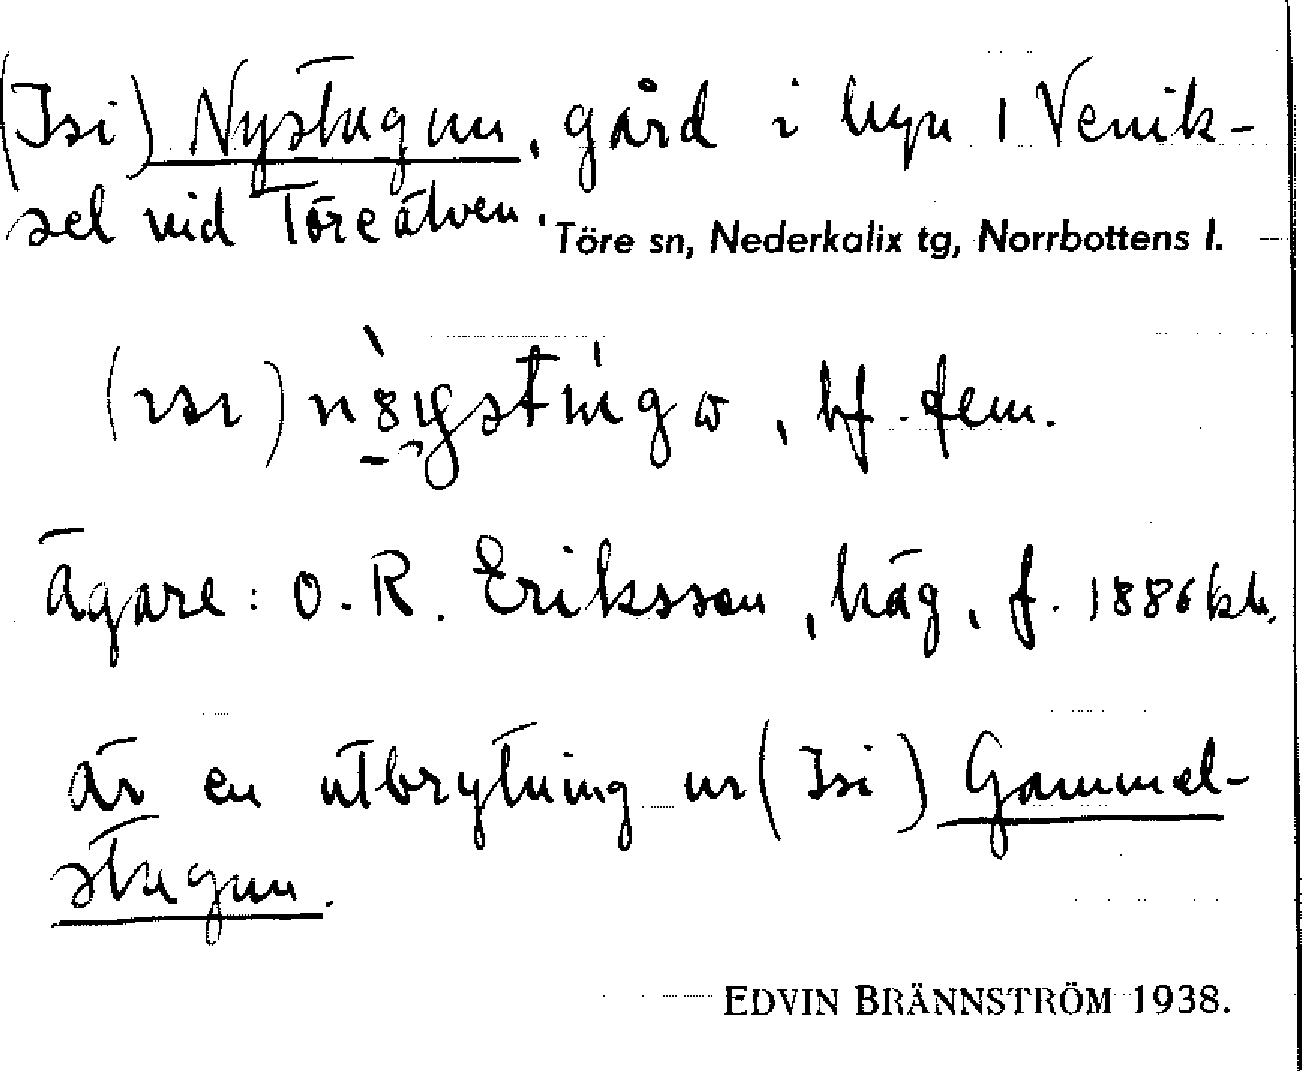 (Isi) Nystugun, gård i byn 1 Venik-
sel vid Töreälven.
Töre sn, Nederkalix tg, Norrbottens l.
hf. fem.
Ägare: O. R. Eriksson, häg, f. 1886 kh,
är en utbrytning ur (Isi) Gammel-
stugun.
EDVIN BRÄNNSTRÖM 1938.